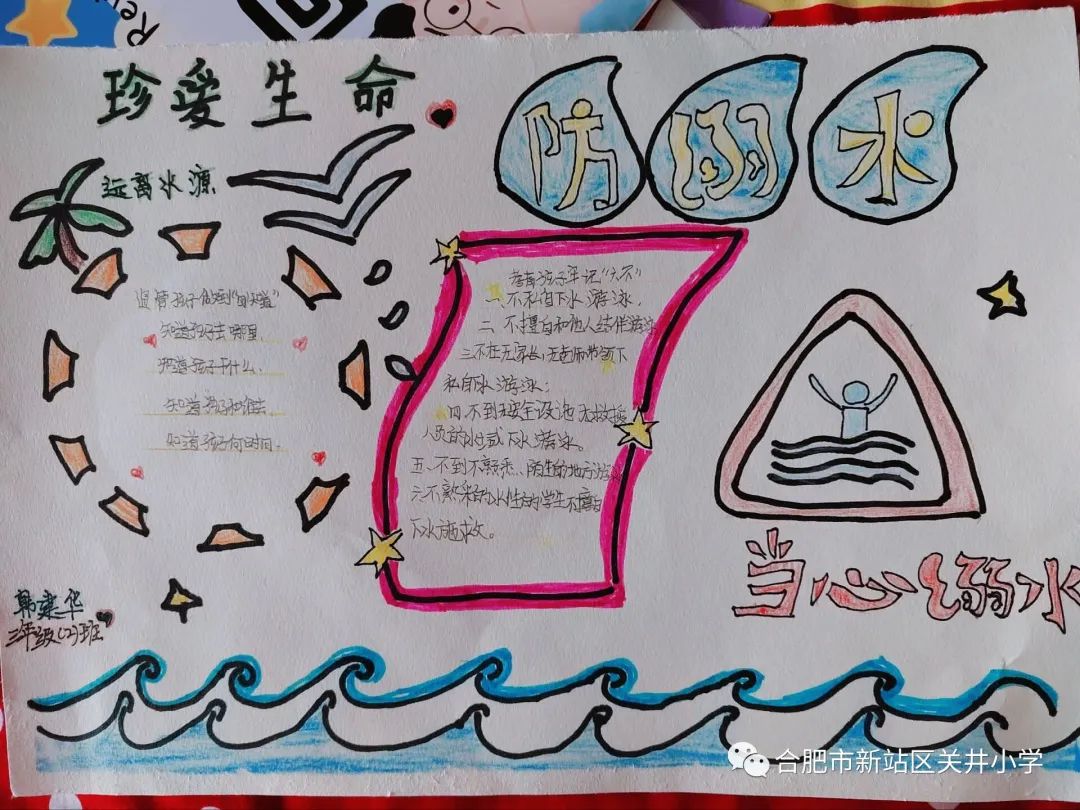 珍爱生命
防溺水
远离水源
监管孩子做到“四知道”
知道孩子去哪里、
知道孩子干什么、
知道孩子和谁去、
知道孩子何时回。
教育孩子牢记“六不”
一、不私自下水游泳、
二、不擅自和他人结伴游泳
三、不在无家长、无老师带领下
私自下水游泳;
四、不到无安全设施、无救援
人员的水域下水游泳。
五、不到不熟悉、陌生的地方游泳
六、不熟悉水性的学生不擅自
下水施救。
当心溺水
韩建华
三年级(2)班
合肥市新站区关井小学